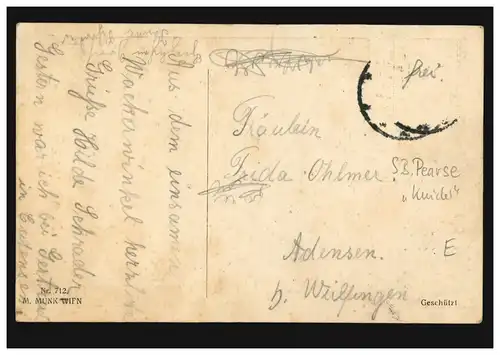 Aus dem einsamen
Wackerwinkel herzl.
Grüße Hilde Schrader
Gestern war ich bei Gertrud
in Eudensen
Nr. 712.
M. MUNK WIEN
frei.
Fräulein
Frida Ohlmer
Adensen.
b. Wülfingen
S.B. Pearse
"Kinder"
E
Geschützt